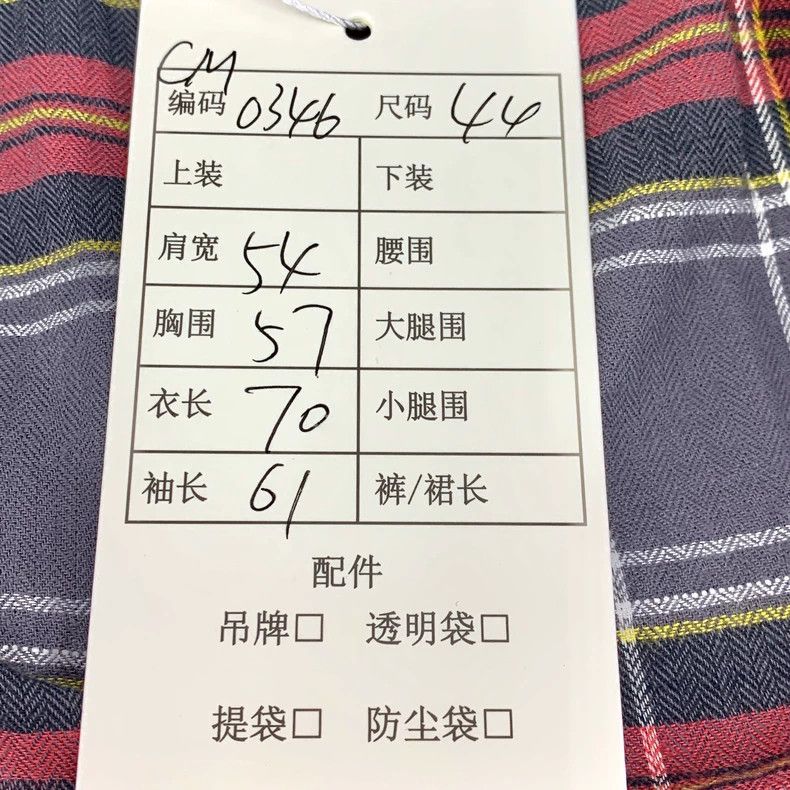 CM
编码 0346 尺码 44
上装 下装
肩宽 54 腰围
胸围 57 大腿围
衣长 70 小腿围
袖长 61 裤/裙长
配件
吊牌□ 透明袋□
提袋□ 防尘袋□